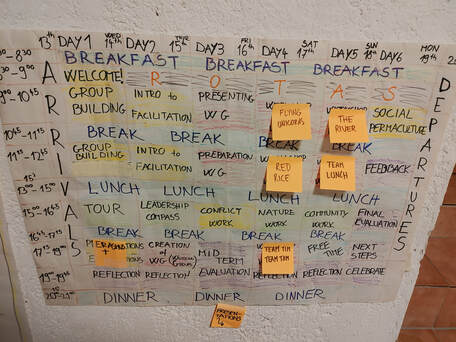 13th DAY1 WED 14th DAY2 THUR 15th DAY3 FRI 16th DAY4 SAT 17th DAY5 SUN 18th DAY6 MON 19th
BREAKFAST BREAKFAST BREAKFAST
WELCOME! R O T A S
GROUP BUILDING INTRO to FACILITATION PRESENTING WG FLYING UNICORNS THE RIVER SOCIAL PERMACULTURE
1045-1115 BREAK BREAK BREAK BREAK
GROUP BUILDING INTRO to FACILITATION PREPARATION WG RED RICE TEAM LUNCH FEEDBACK
LUNCH LUNCH LUNCH LUNCH
TOUR LEADERSHIP COMPASS CONFLICT WORK NATURE WORK COMMUNITY WORK FINAL EVALUATION
BREAK BREAK BREAK BREAK BREAK
CREATION of WG MID TERM EVALUATION TEAM TIM TEAM TAM FREE TIME NEXT STEPS
REFLECTION REFLECTION REFLECTION REFLECTION CELEBRATE
DINNER DINNER DINNER
ARRIVALS
DEPARTURES
PRESEN-
TATIONS